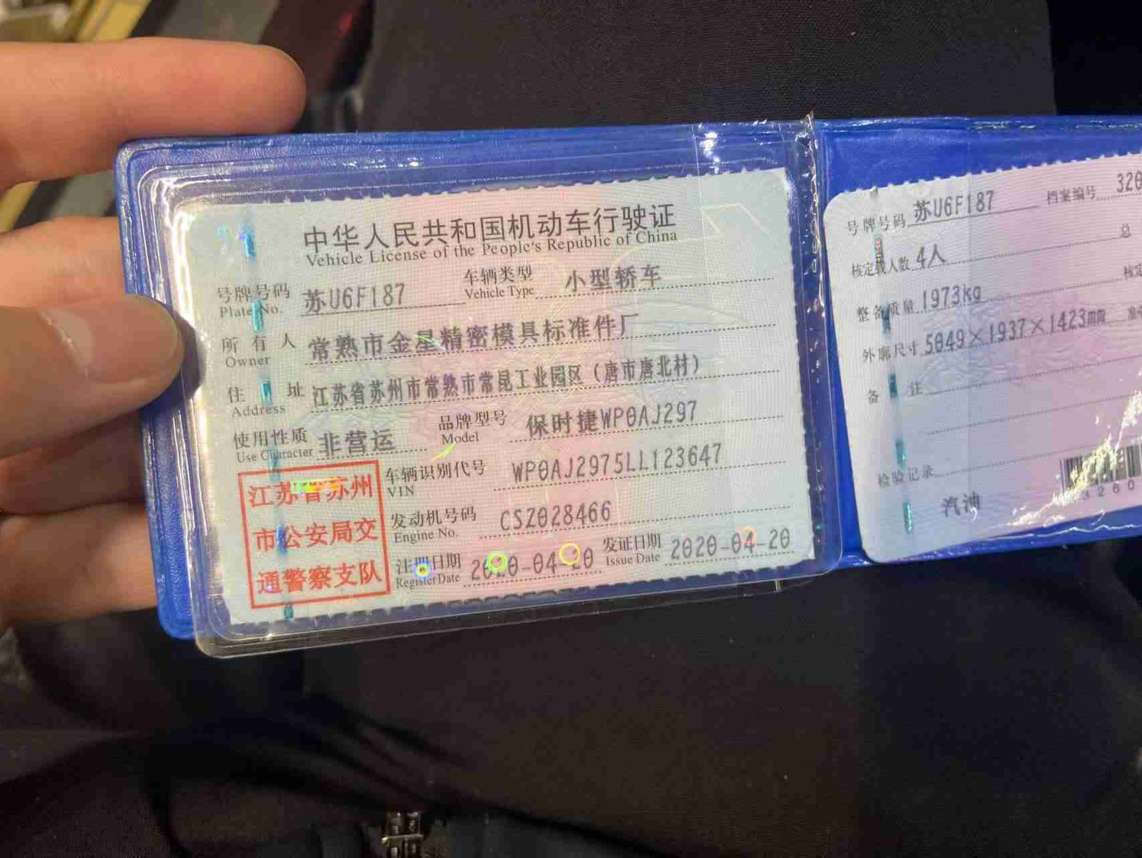 中华人民共和国机动车行驶证
Vehicle License of the People's Republic of China
号牌号码 苏U6F187 车辆类型 小型轿车
Plate No. Vehicle Type
所有人 常熟市金星精密模具标准件厂
Owner
住址 江苏省苏州市常熟市常昆工业园区(唐市唐北村)
Address
使用性质 非营运 品牌型号 保时捷WP0AJ297
Use Character Model
车辆识别代号 WP0AJ2975LL123647
VIN
发动机号码 CSZ028466
Engine No.
注册日期 2020-04-20 发证日期 2020-04-20
Register Date Issue Date
江苏省苏州
市公安局交
通警察支队
号牌号码 苏U6F187 档案编号 320
核定载人数 4人 总
整备质量 1973kg 核定
外廓尺寸 5049×1937×1423mm
备注
检验记录
汽油